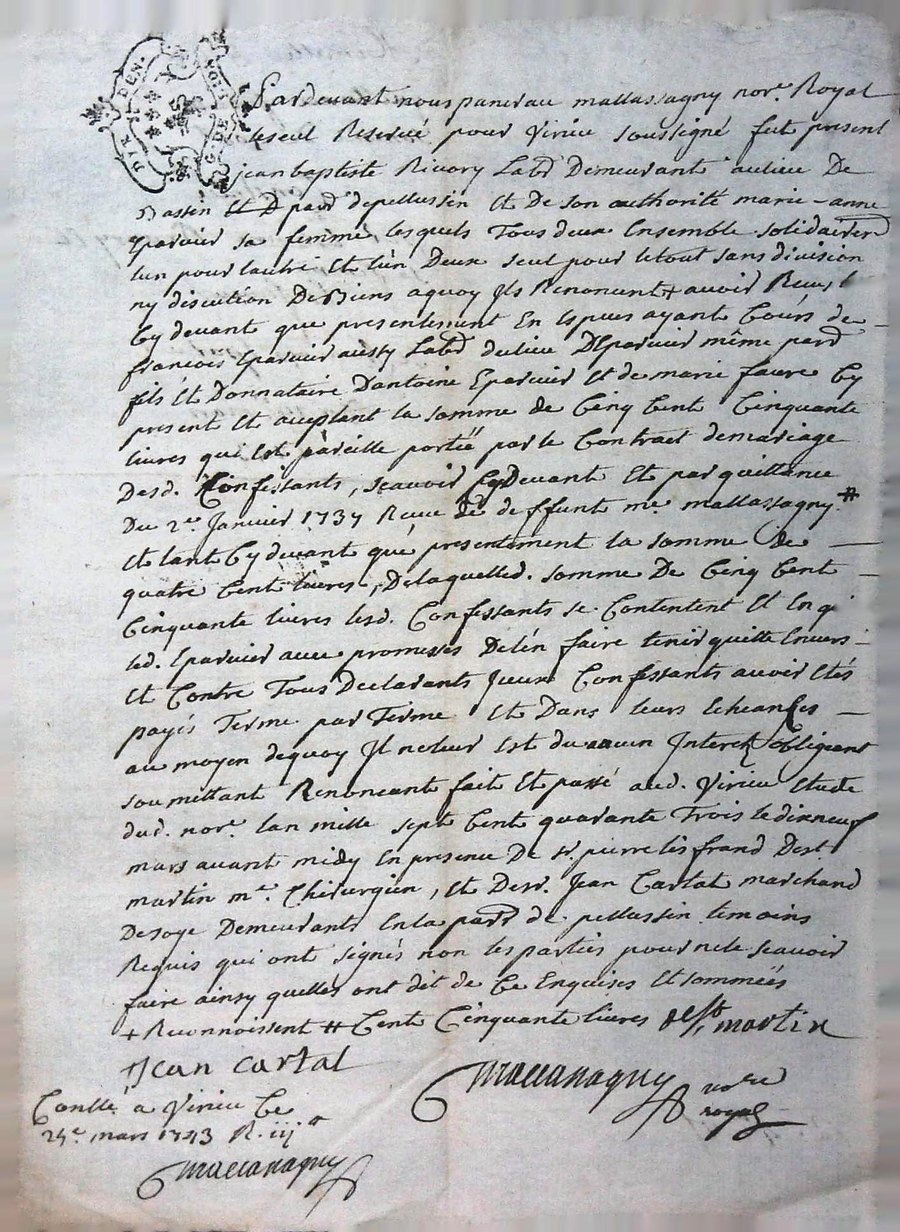 DEN.
Pardevant nous panerau mallassagny nore. Royal
le seul Reservé pour Virieu soussigné fut present
jean baptiste Rivory Labr Demeurant au lieu De
Bassin et D parr depellussin Et De son authorité marie-anne
Eparvier sa femme lesquels Tous deux Ensemble solidairemt
lun pour lautre Et lun Deux seul pour letout sans division
ny discution De Biens aquoy Ils Renoncent + avoir Receu, t
Cy devant que presentement En Especes ayant Cours de —
francois Eparvier aussy Labr dulieu DEparvier même parr
fils Et Donnataire Dantoine Eparvier Et de marie faure Cy
present Et aceptant la somme de Cinq Cent Cinquante
livres qui Est pareille portée par le Contract demariage
Desd. Confessants, scavoir Cy Devant Et par quittance
Du 2e Janvier 1737 Receue de deffunt me mallassagny #
Et tant Cy devant que presentement la somme de —
quatre Cent livres, Delaquelled. somme De Cinq Cent —
Cinquante livres lesd. Confessants se Contentent Et En q
led. Eparvier avec promesses Delen faire tenir quitte Envers —
Et Contre Tous Declarants Iceux Confessants avoir Etés
payés Terme par Terme Et Dans leurs Echeances —
au moyen dequoy Il neleur Est du aucun Interet obligeant
soumettant Renonceant fait Et passé aud. Virieu Etude
dud. nore. lan mille sept Cent quarante Trois le dixneuf
mars avant midy En presence De sr. pierre lisfrand Dest.
martin me. Chirurgien, Et De sr. Jean Cartal marchand
Desoye Demeurants En la parr de pellussin temoins
Requis qui ont signés non les parties pour nele scavoir
faire ainsy quelles ont dit de Ce Enquises Et sommées
+ Reconnoissent # Cent Cinquante livres deSt martin
Jean cartal
mallassagny nore
royal
Conllé a Virieu Ce
24e mars 1743 R. iij
mallassagny